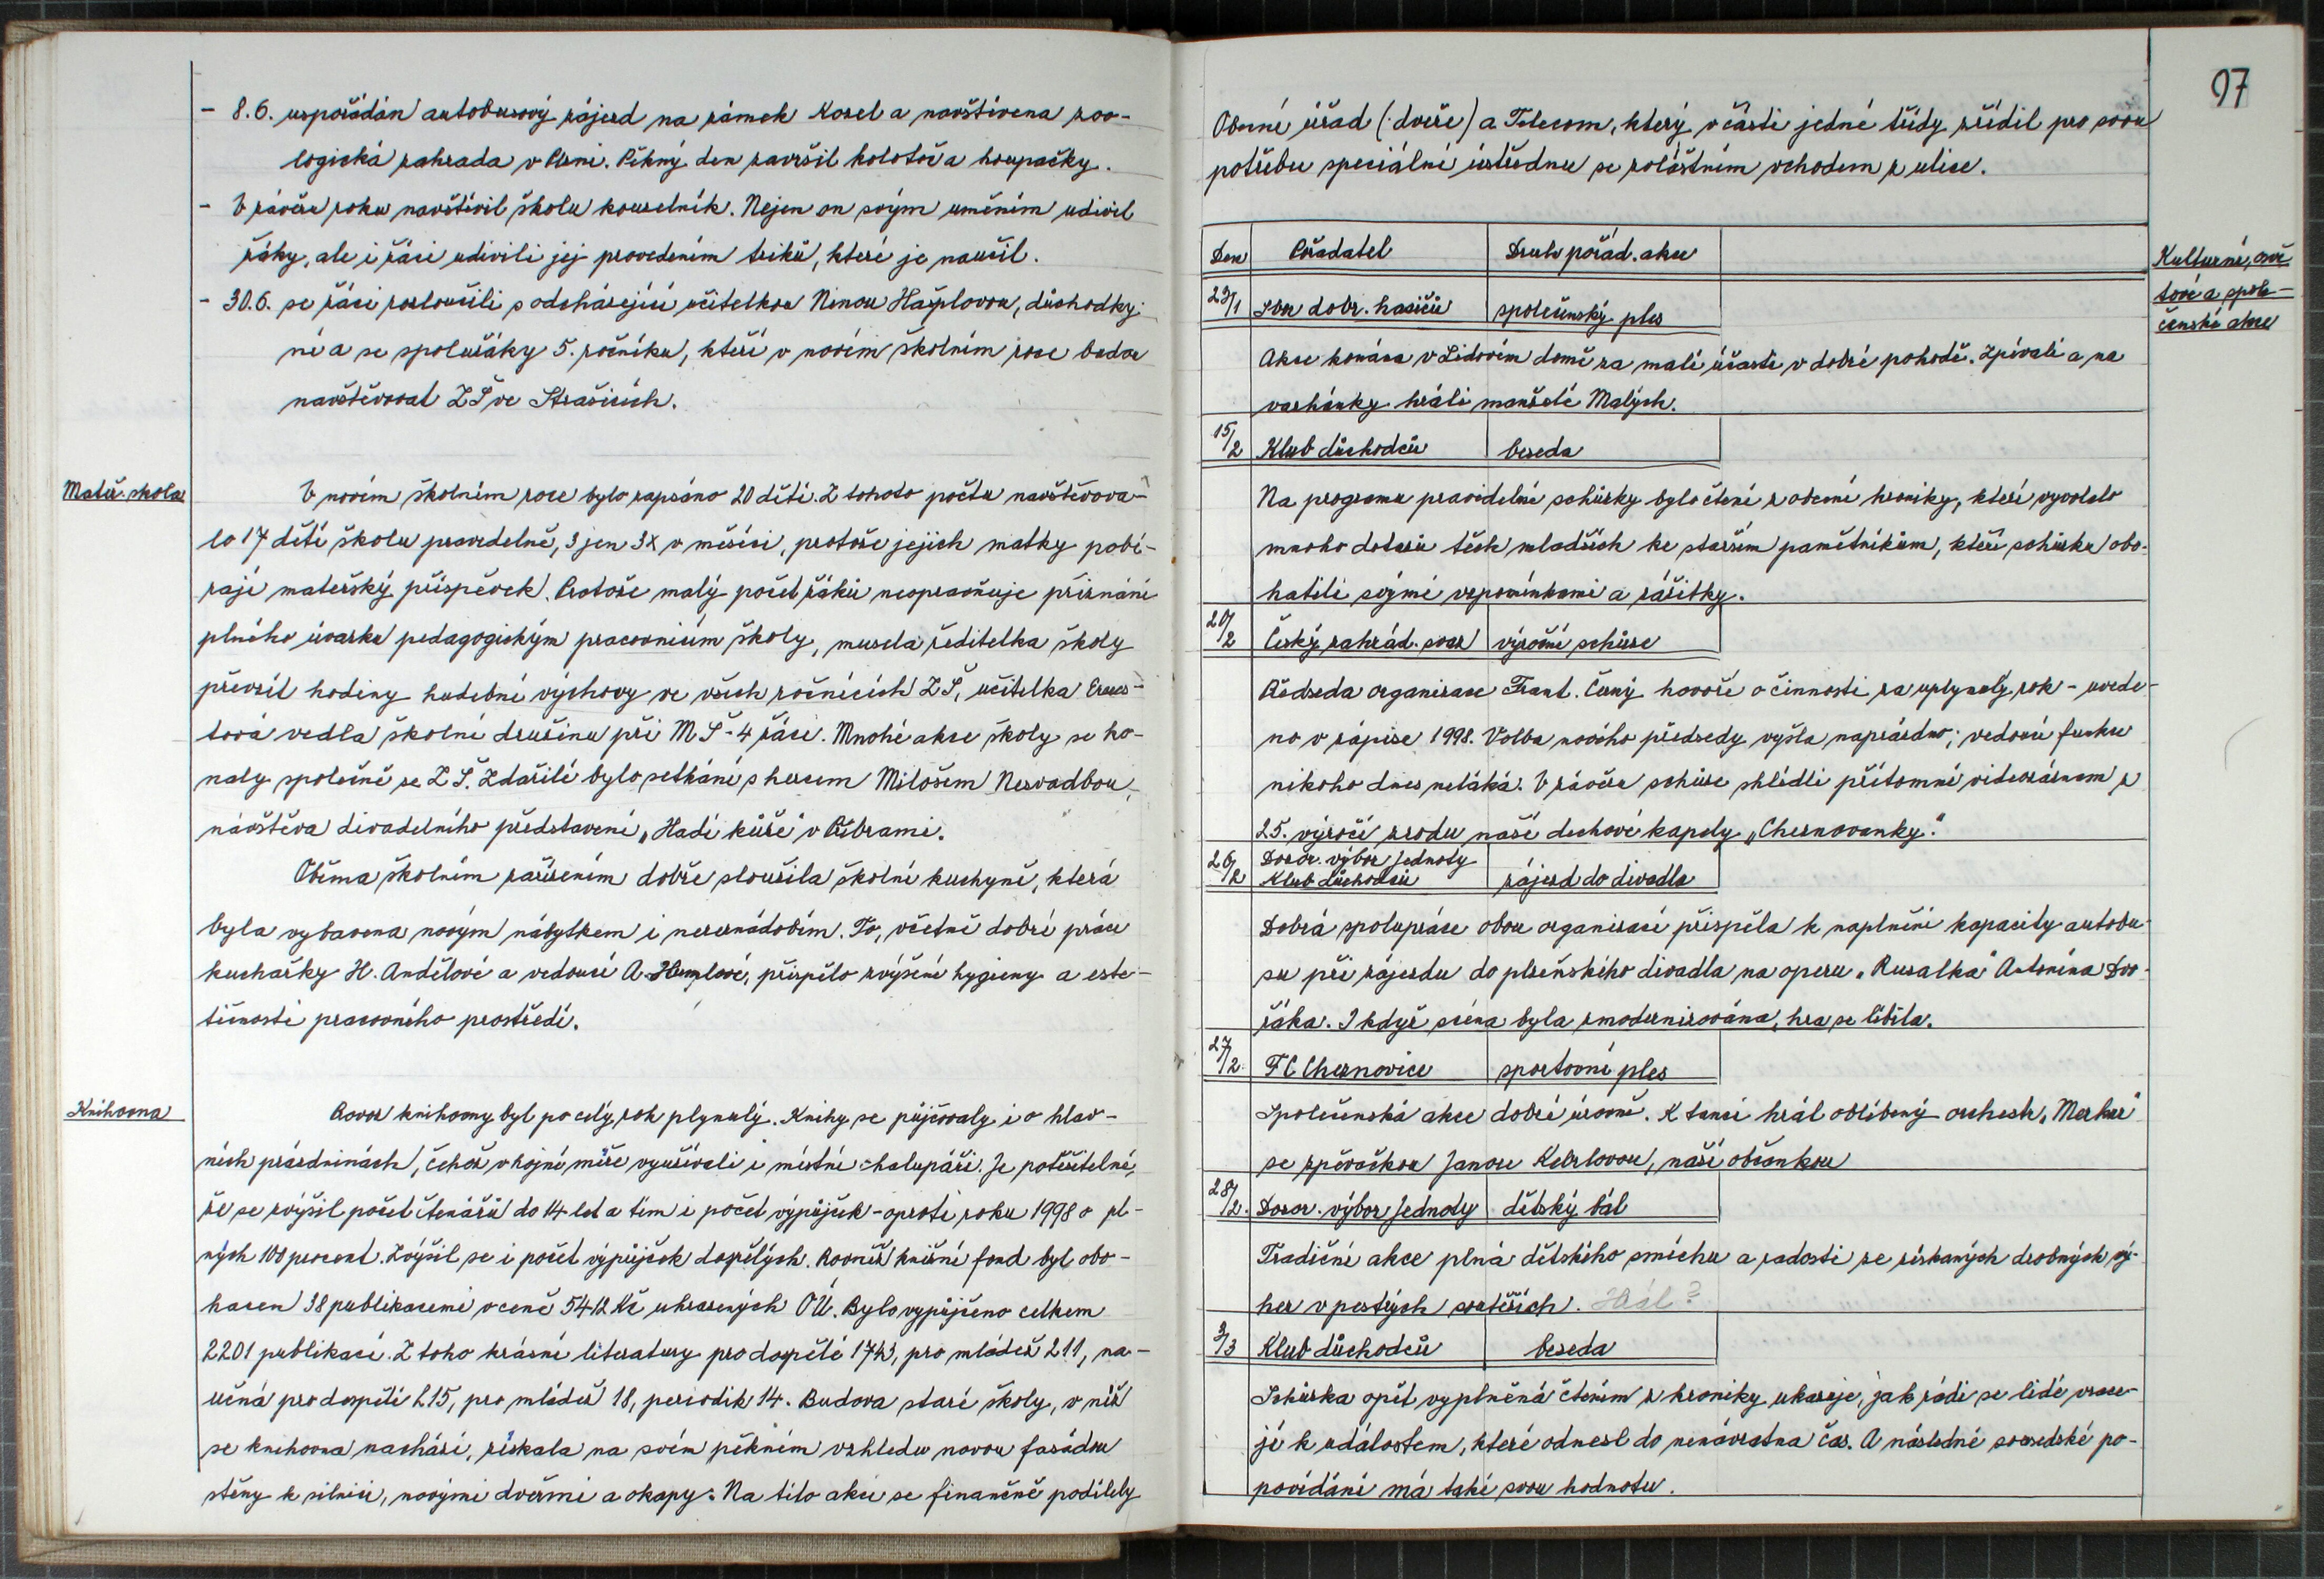 - 8.6. uspořádán autobusový zájezd na zámek Kozel a navštívena zoo-
logická zahrada v Plzni. Pěkný den završil kolotoč a houpačky.
- V závěru roku navštívil školu kouzelník. Nejen on svým uměním udivil
žáky, ale i žáci udivili jej provedením triků, které je naučil.
- 30.6. se žáci rozloučili s odcházející učitelkou Ninou Hašplovou, důchodky-
ní a se spolužáky 5. ročníku, kteří v novém školním roce budou
navštěvovat ZŠ ve Strašicích.
Mateř. škola
V novém školním roce bylo zapsáno 20 dětí. Z tohoto počtu navštěvova-
lo 17 dětí školu pravidelně, 3 jen 3x v měsíci, protože jejich matky pobí-
rají mateřský příspěvek. Protože malý počet žáků neopravňuje přiznání
plného úvazku pedagogickým pracovnicím školy, musela ředitelka školy
převzít hodiny hudební výchovy ve všech ročnících ZŠ, učitelka
tová vedla školní družinu při MŠ - 4 žáci. Mnohé akce školy se ko-
naly společně se ZŠ. Zdařilé bylo setkání s hercem Milošem Nesvadbou,
návštěva divadelního představení „Hadí kůže" v Příbrami.
Oběma školním zařízením dobře sloužila školní kuchyně, která
byla vybavena novým nábytkem i nerez nádobím. To, včetně dobré práce
kuchařky H. Andělové a vedoucí A. Humlové, přispělo zvýšení hygieny a este-
tičnosti pracovního prostředí.
Knihovna
Provoz knihovny byl po celý rok plynulý. Knihy se půjčovaly i o hlav-
ních prázdninách, čehož v hojné míře využívali i místní chalupáři. Je potěšitelné,
že se zvýšil počet čtenářů do 14 let a tím i počet výpůjček - oproti roku 1998 o pl-
ných 100 procent. Zvýšil se i počet výpůjček dospělých. Rovněž knižní fond byl obo-
hacen 38 publikacemi v ceně 5412 Kč uhrazených OÚ. Bylo vypůjčeno celkem
2201 publikací. Z toho krásné literatury pro dospělé 1743, pro mládež 211, na-
učná pro dospělé 215, pro mládež 18, periodik 14. Budova staré školy, v níž
se knihovna nachází, získala na svém pěkném vzhledu novou fasádou
stěny k silnici, novými dveřmi a okapy. Na této akci se finančně podílely
97
Obecní úřad (dveře) a Telecom, který v části jedné třídy zřídil pro svou
potřebu speciální ústřednu se zvláštním vchodem z ulice.
Kulturní, osvě-
tové a spole-
čenské akce
Den Pořadatel Druh pořád. akce
23/1 Sbor dobr. hasičů společenský ples
Akce konána v Lidovém domě za malé účasti v dobré pohodě. Zpívali a na
varhánky hráli manželé Malých.
15/2 Klub důchodců beseda
Na programu pravidelné schůzky bylo čtení z obecní kroniky, které vyvolalo
mnoho dotazů těch mladších ke starším pamětníkům, kteří schůzku obo-
hatili svými vzpomínkami a zážitky.
20/2 Český zahrád. svaz výroční schůze
Předseda organizace Frant. Černý hovořil o činnosti za uplynulý rok - uvede-
no v zápise 1998. Volba nového předsedy vyšla naprázdno; vedoucí funkce
nikoho dnes neláká. V závěru schůze shlédli přítomní videozáznam z
25. výročí zrodu naší dechové kapely „Cheznovanky".
26/2 Dozor. výbor Jednoty
Klub důchodců zájezd do divadla
Dobrá spolupráce obou organizací přispěla k naplnění kapacity autobu-
su při zájezdu do plzeňského divadla na operu „Rusalka" Antonína Dvo-
řáka. I když scéna byla zmodernizována, hra se líbila.
27/2. FC Cheznovice sportovní ples
Společenská akce dobré úrovně. K tanci hrál oblíbený orchestr „Merkur"
se zpěvačkou Janou Kebrlovou, naší občankou
28/2. Dozor. výbor Jednoty dětský bál
Tradiční akce plná dětského smíchu a radosti ze získaných drobných vý-
her v pestrých soutěžích. Hrál?
3/3 Klub důchodců beseda
Schůzka opět vyplněná čtením z kroniky ukazuje, jak rádi se lidé vrace-
jí k událostem, které odnesl do nenávratna čas. A následné sousedské po-
povídání má také svou hodnotu.